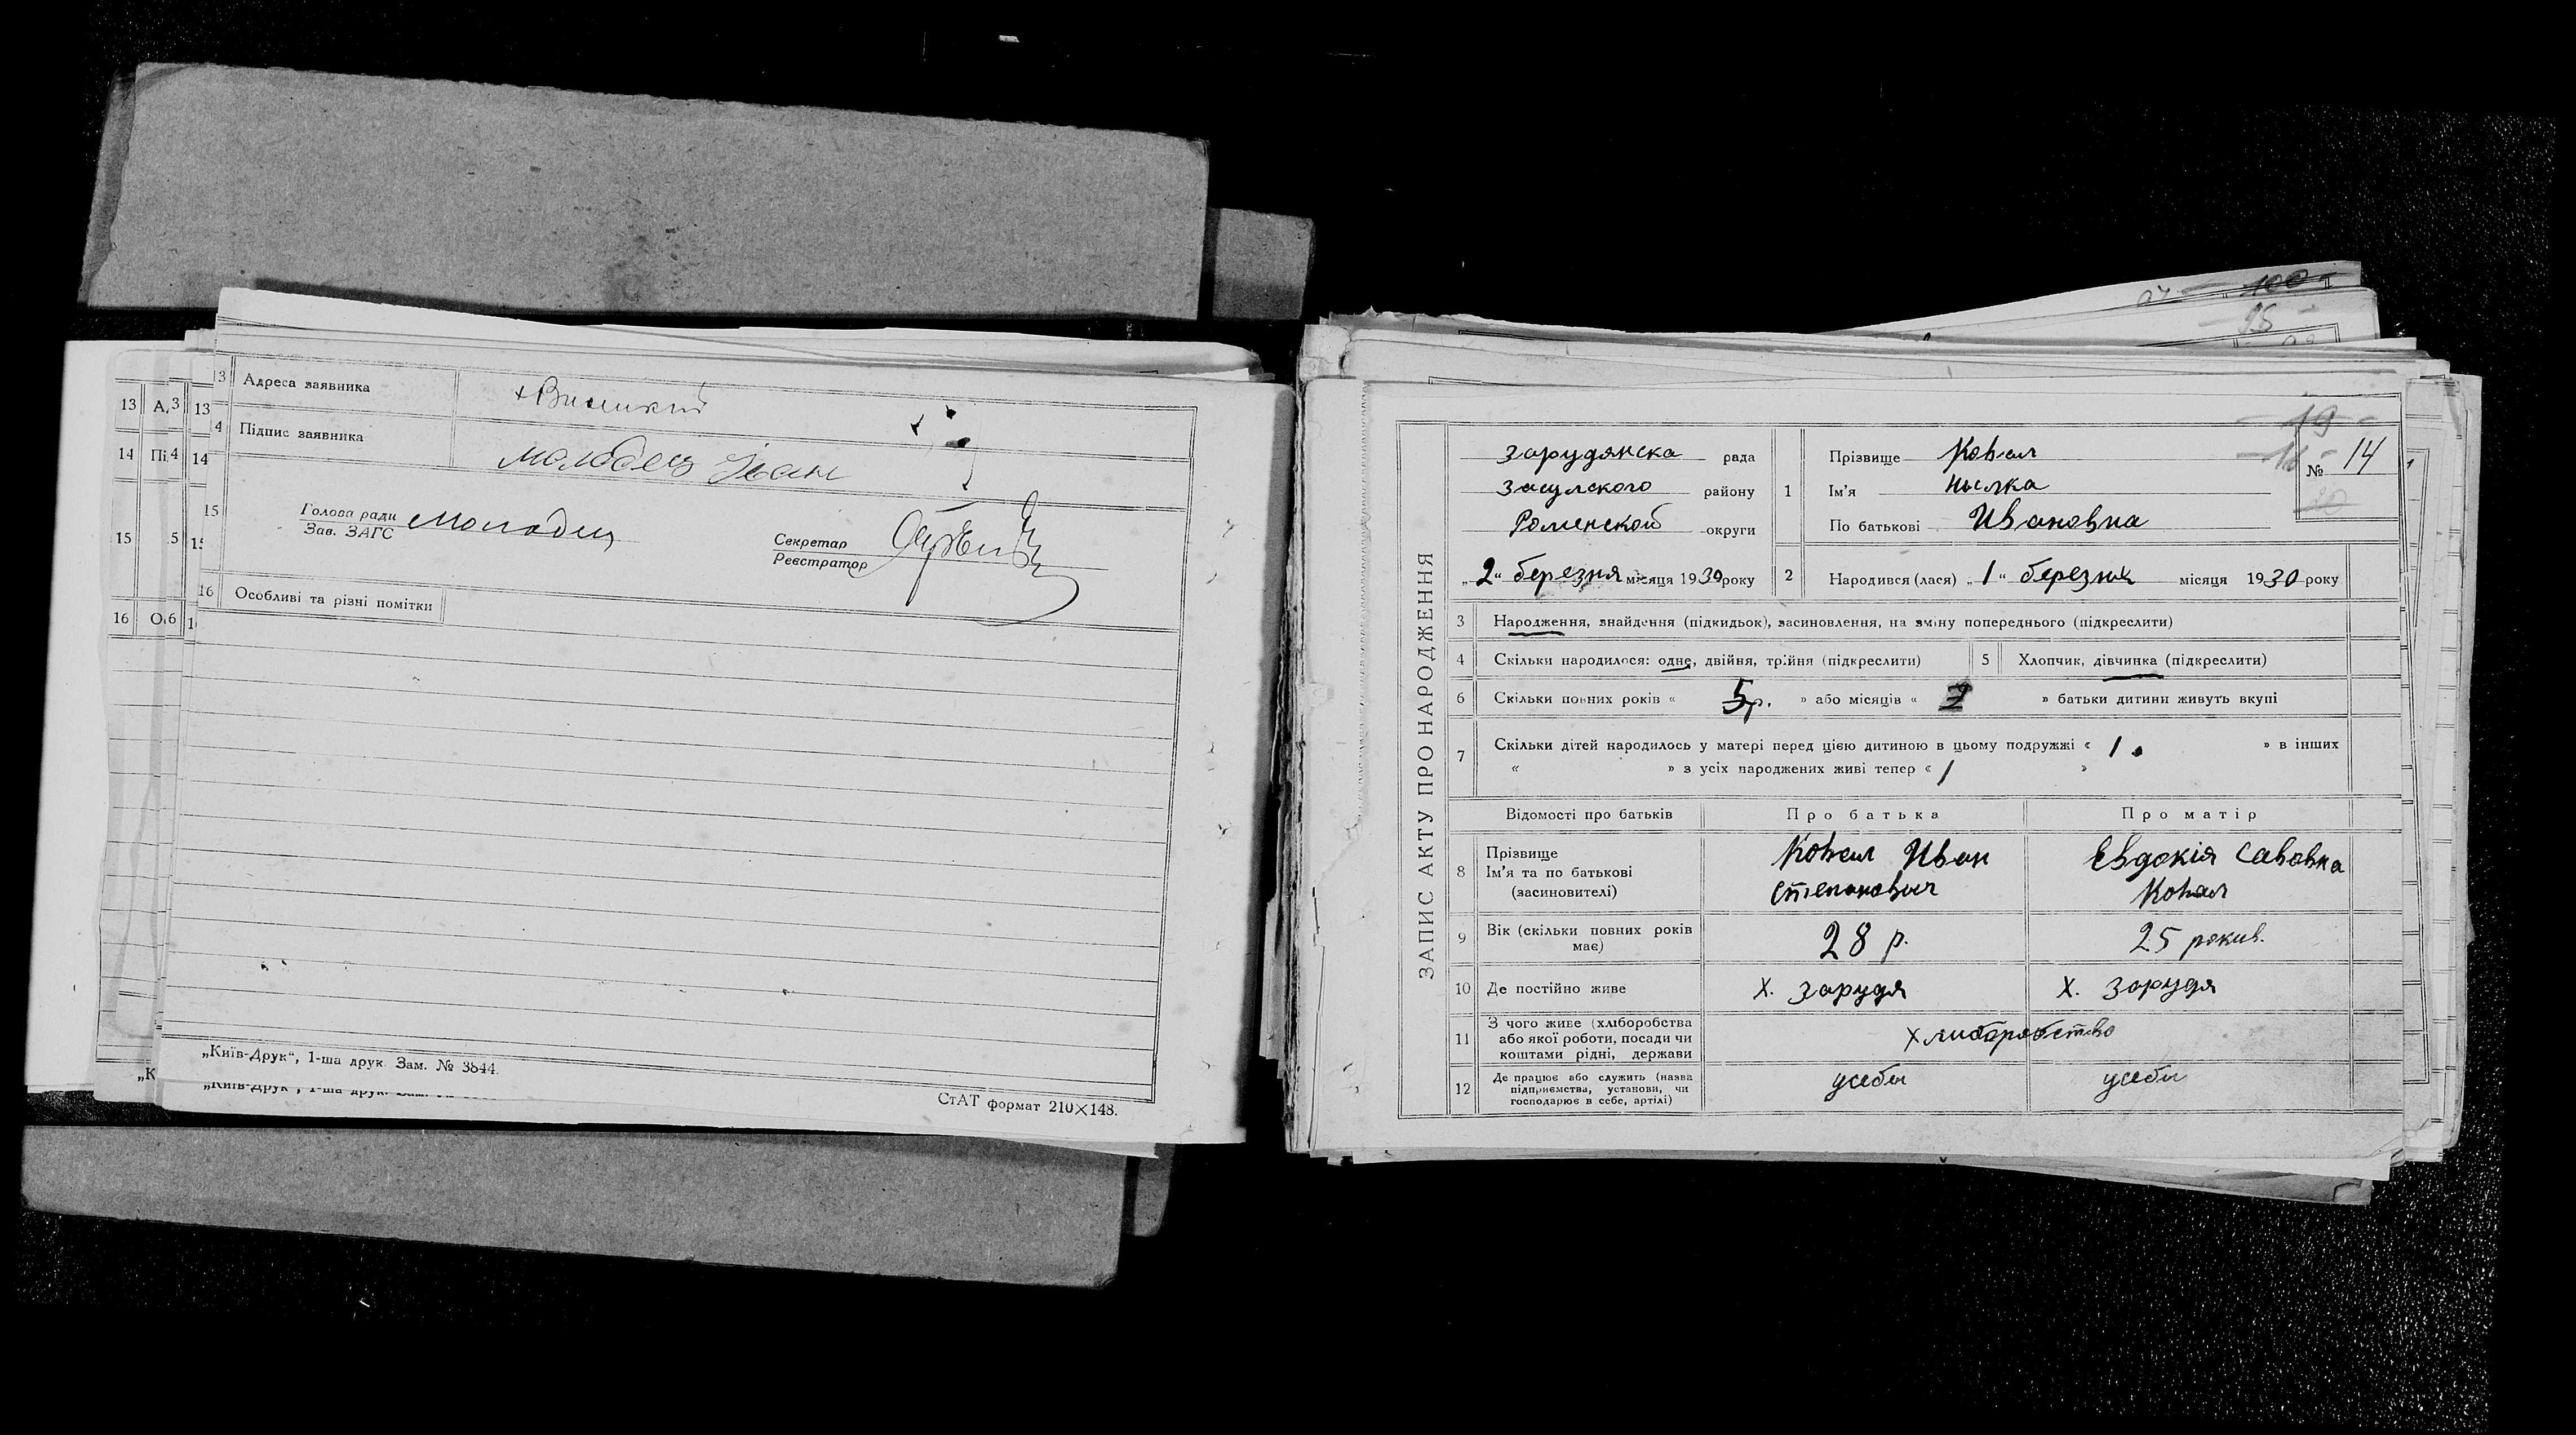 3 Адреса заявника
4 Підпис заявника Молодец Іван
15 Голова ради Молодец
Зав. ЗАГС
Секретар
Реєстратор
16 Особливі та різні помітки
„Київ-Друк“, 1-ша друк. Зам. № 3844.
СтАТ формат 210×148.
13 А. 3 13
14 Пі. 4 14
15 5 15
16 О 6 1
100
95
19
16
№ 14
20
ЗАПИС АКТУ ПРО НАРОДЖЕННЯ
Зарудянска рада
Засулского району
Роменской округи
„2“ березня місяця 1930 року
1 Прізвище Ковал
Ім'я
По батькові Ивановна
2 Народився (лася) „1“ березня місяця 1930 року
3 Народження, знайдення (підкидьок), засиновлення, на зміну попереднього (підкреслити)
4 Скільки народилося: одне, двійня, трійня (підкреслити) 5 Хлопчик, дівчинка (підкреслити)
6 Скільки повних років « 5 р. » або місяців « » батьки дитини живуть вкупі
7 Скільки дітей народилось у матері перед цією дитиною в цьому подружжі « 1 » в інших
« » з усіх народжених живі тепер « 1 »
Відомості про батьків Про батька Про матір
8 Прізвище
Ім'я та по батькові
(засиновителі)
Ковал Иван
Степановыч
Евдокія Савовна
Ковал
9 Вік (скільки повних років має) 28 р. 25 рокив.
10 Де постійно живе х. Зарудя х. Зарудя
11 З чого живе (хліборобства
або якої роботи, посади чи
коштами рідні, держави
хлиборобство
12 Де працює або служить (назва
підприємства, установи, чи
господарює в себе, артілі)
усебы усебы